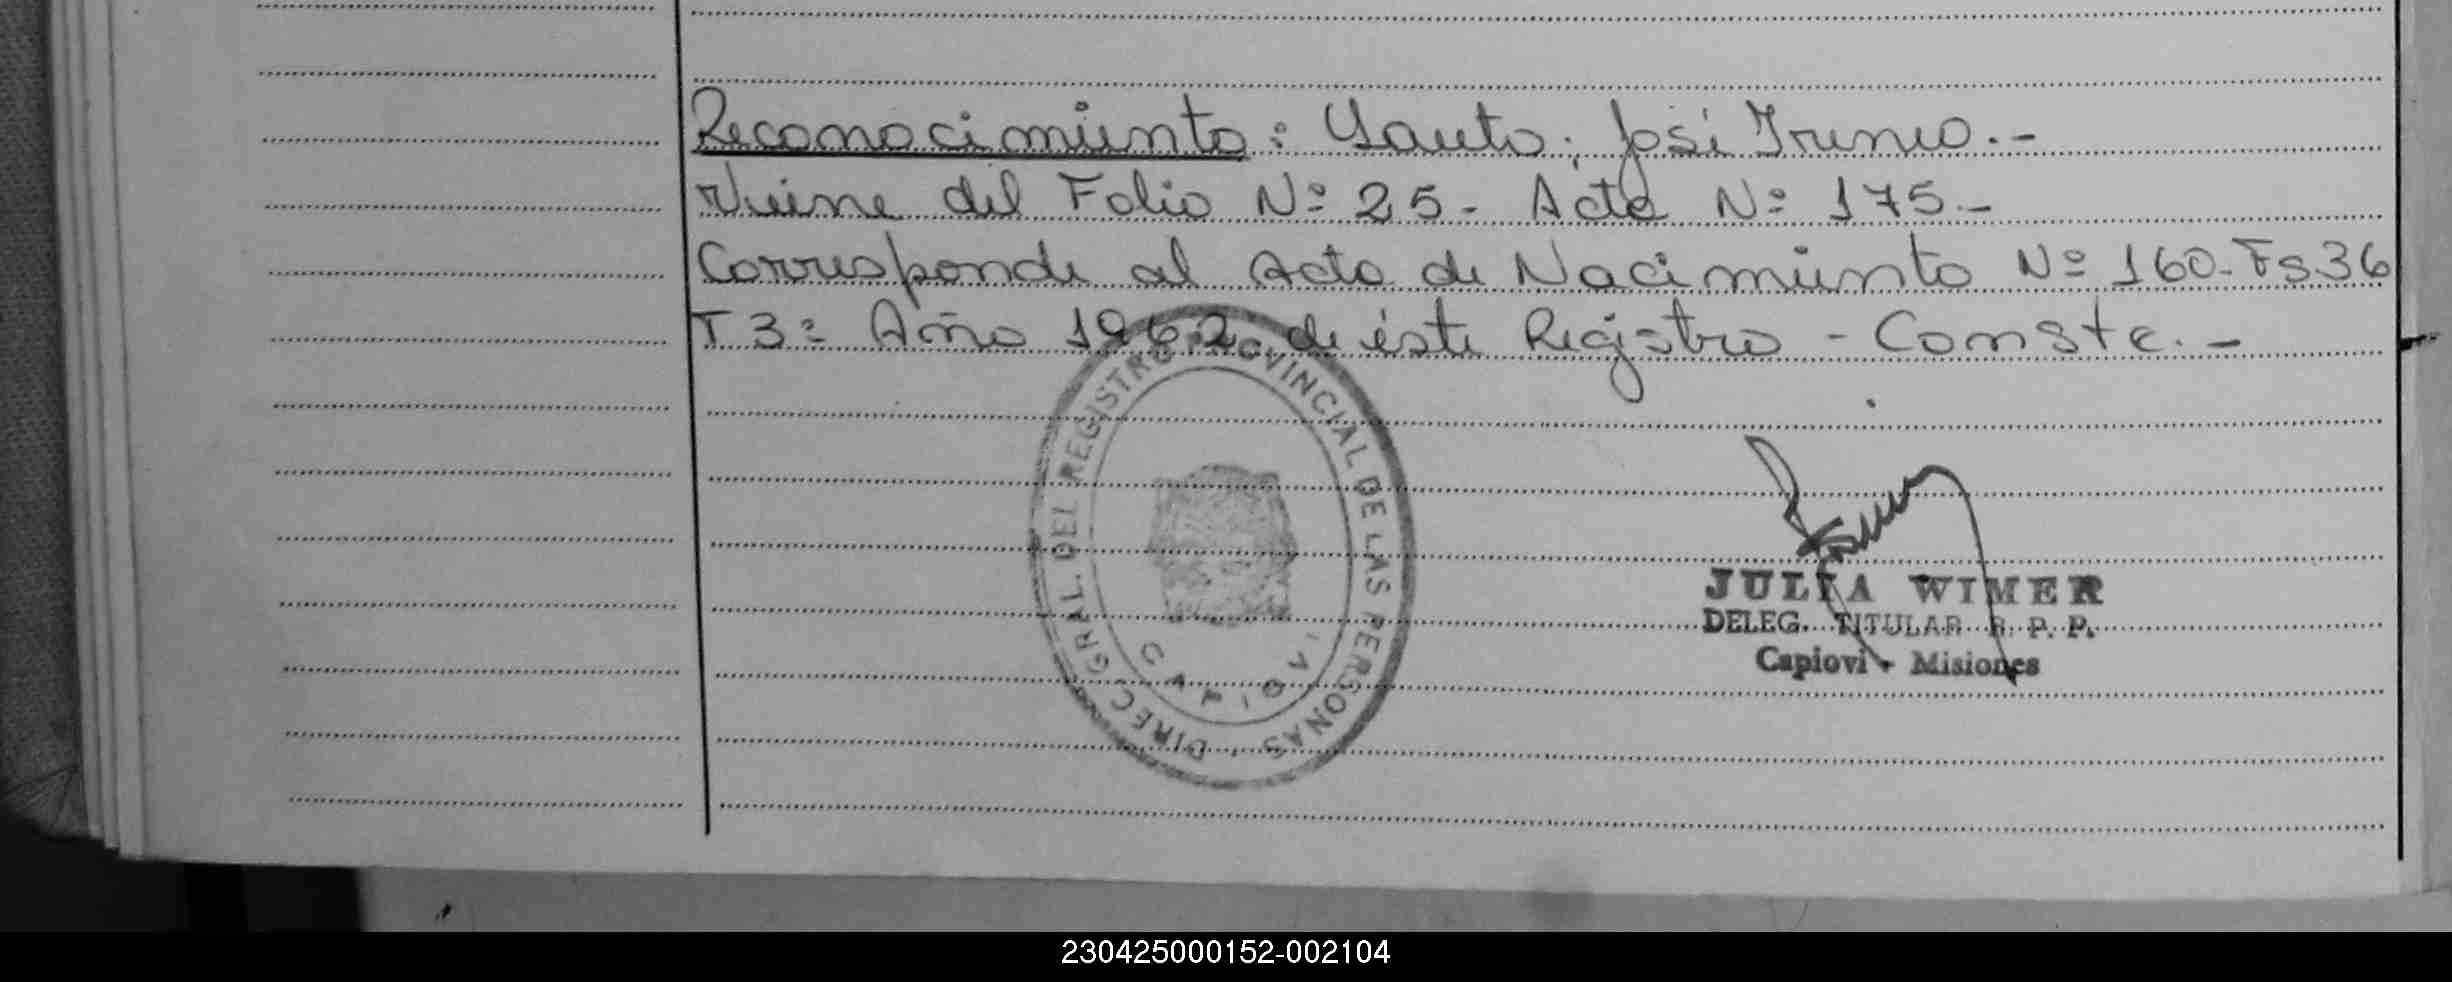 Reconocimiento: Yauto, José Ireneo.-
Viene del Folio Nº 25- Acta Nº 175.-
Corresponde al Acta de Nacimiento Nº 160-Fs36
T 3: Año 1962 de éste Registro - Conste.-
DIREC. GRAL. DEL REGISTRO PROVINCIAL DE LAS PERSONAS
CAPIOVI
JULIA WIMER
DELEG. TITULAR R. P. P.
Capiovi - Misiones
230425000152-002104